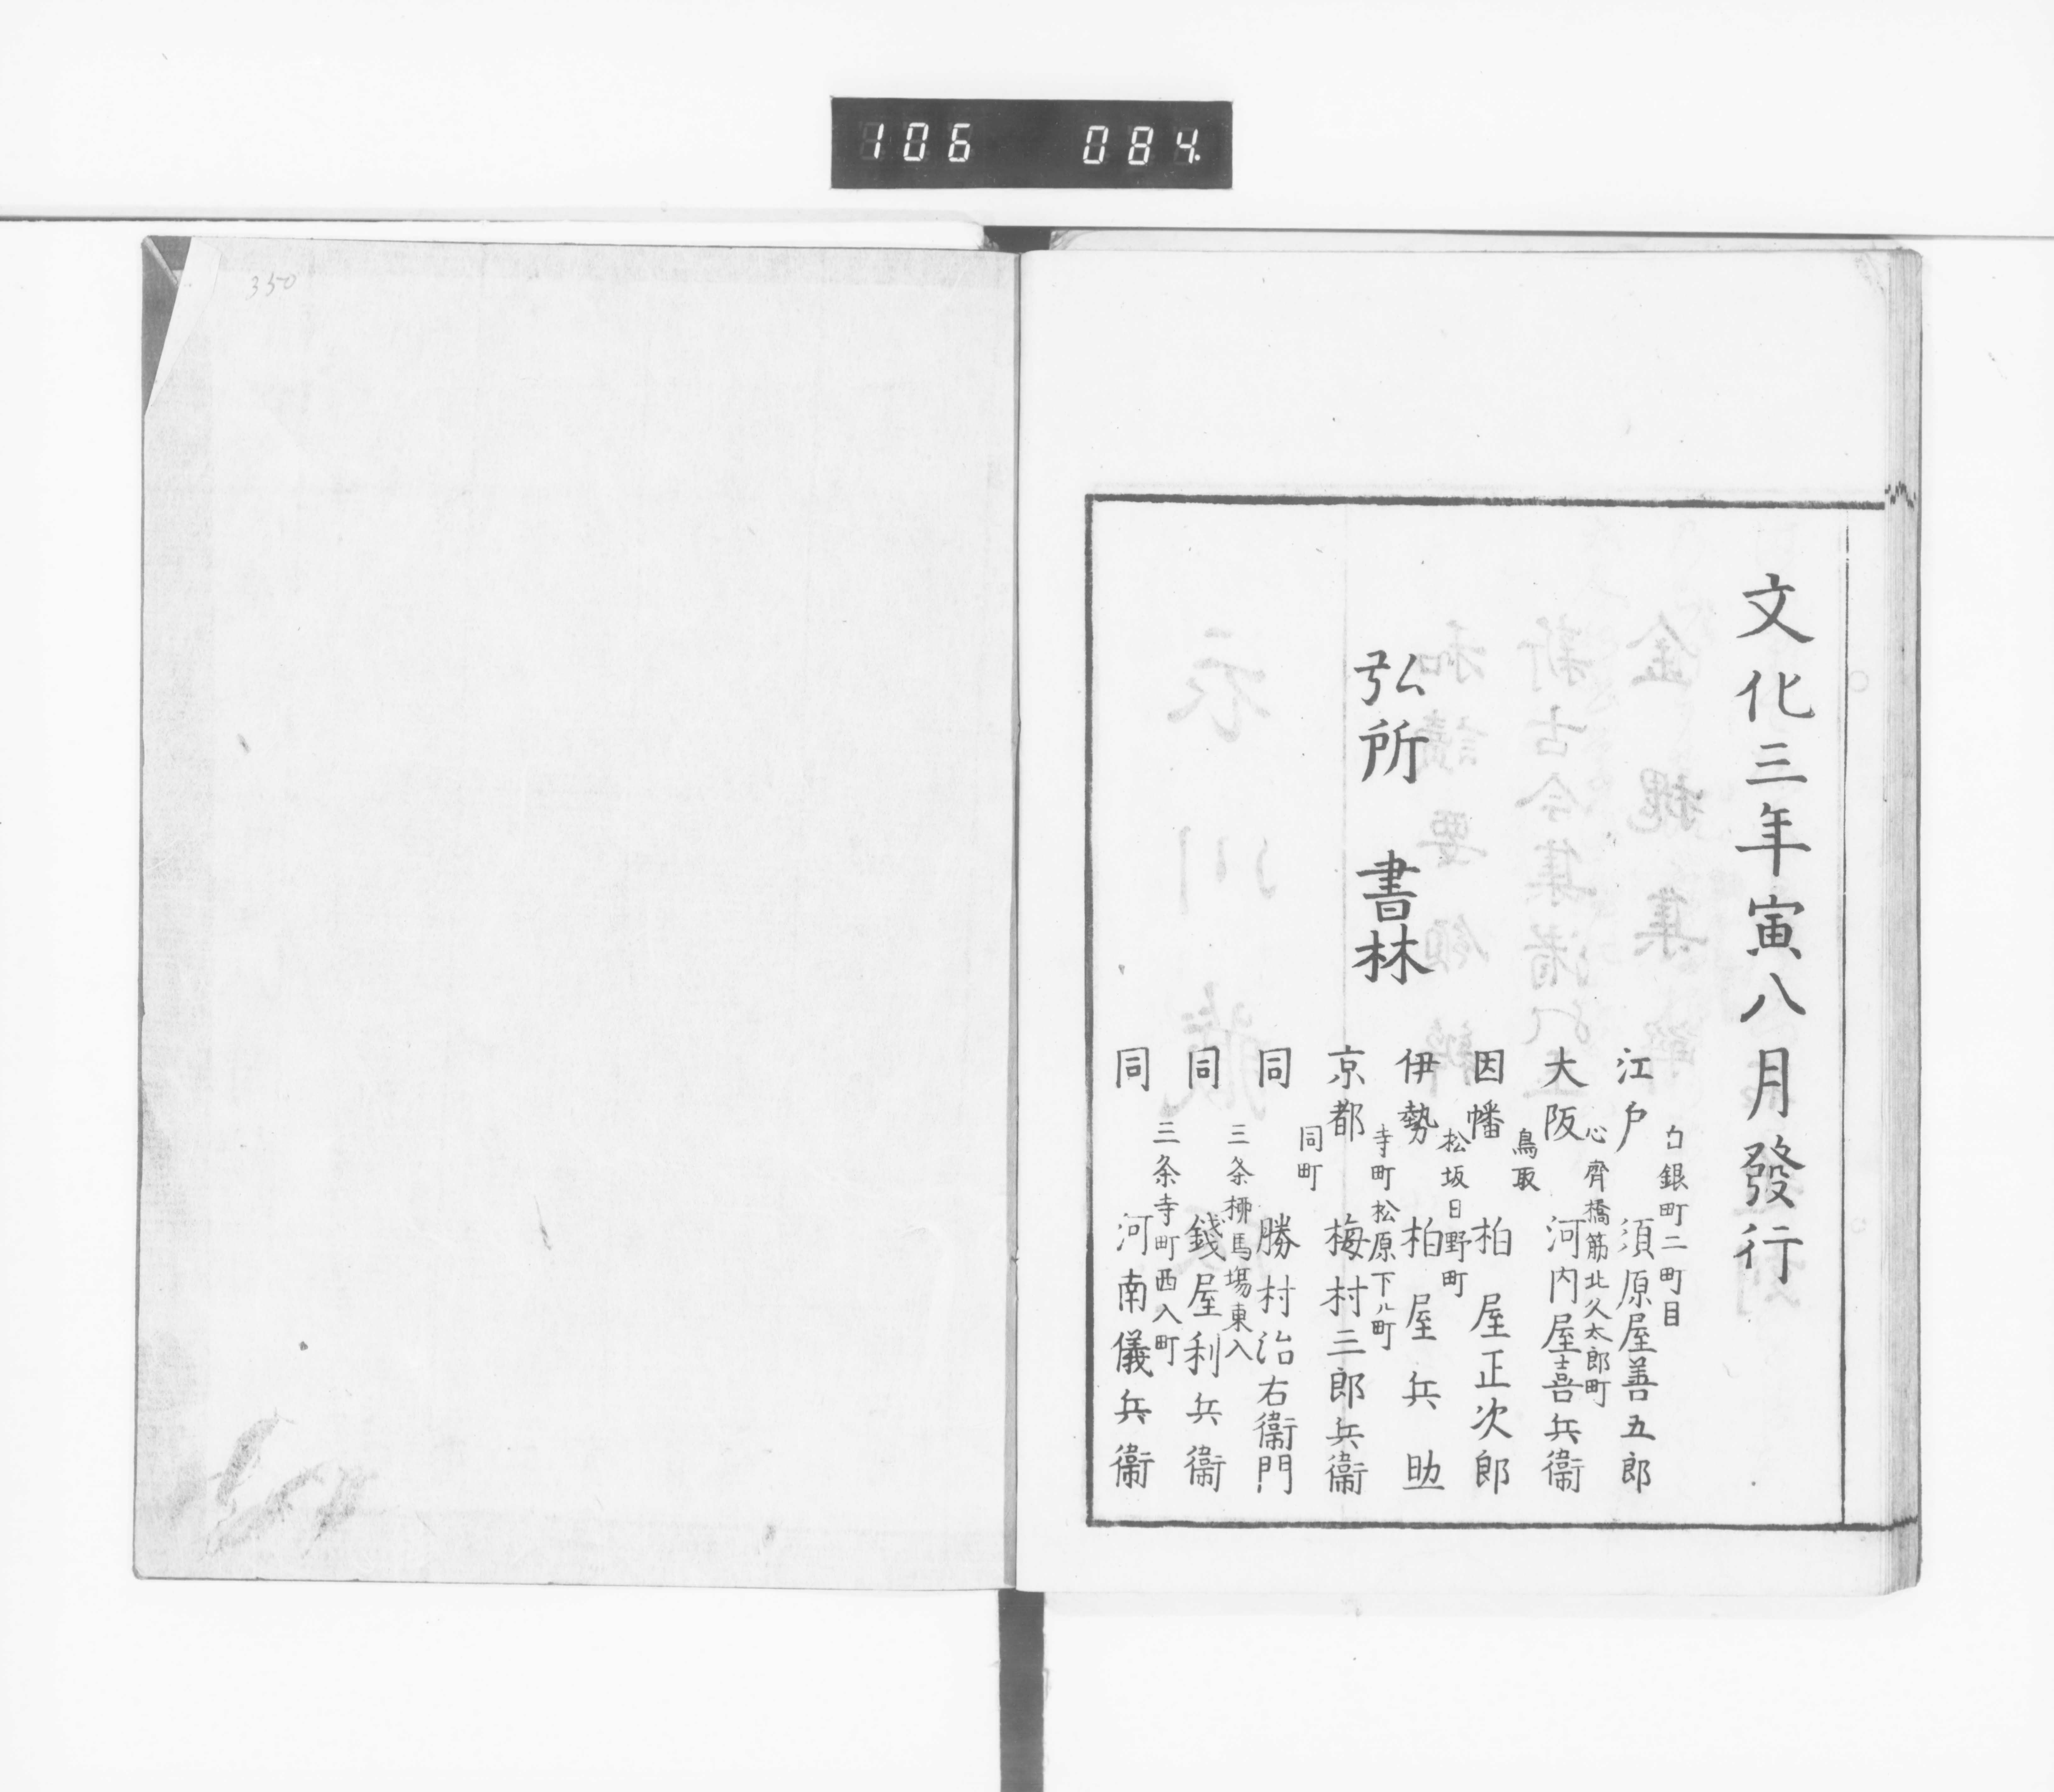 106 084.
文化三年寅八月發行
弘所 書林
白銀町二町目
江戸 須原屋善五郎
心齊橋筋北久太郎町
大阪 河内屋喜兵衞
鳥取
因幡 柏屋正次郎
松坂日野町
伊勢 柏屋兵助
寺町松原下ル町
京都 梅村三郎兵衞
同町
同 勝村治右衞門
三条栁馬塲東入
同 錢屋利兵衞
三条寺町西入町
同 河南儀兵衞
350